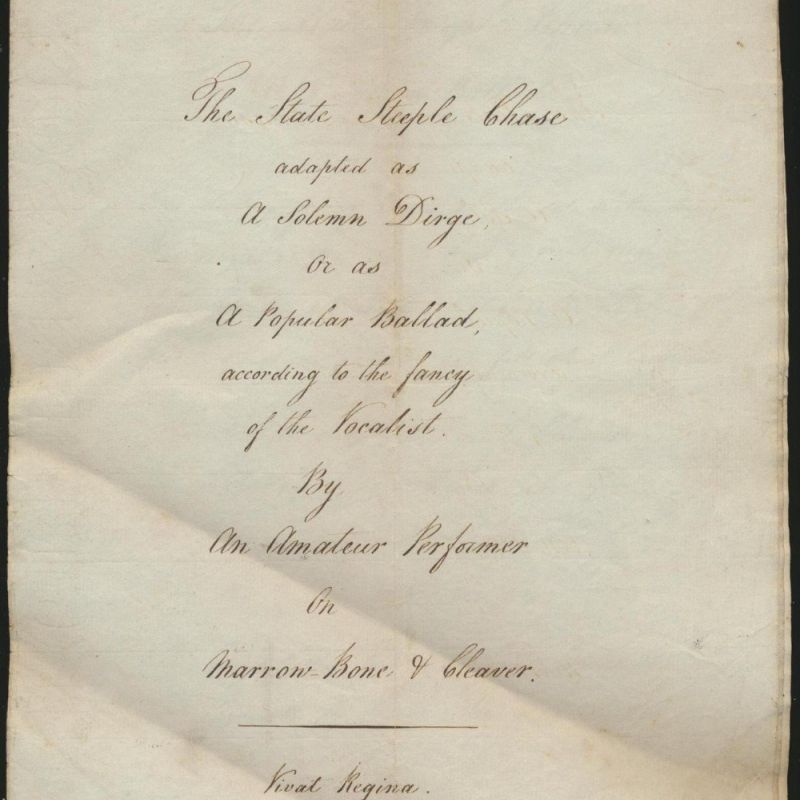 The State Steeple Chase
adapted as
A Solemn Dirge,
Or as
A Popular Ballad,
according to the fancy
of the Vocalist.
By
An Amateur Performer
On
Marrow-Bone & Cleaver.
Vivat Regina.